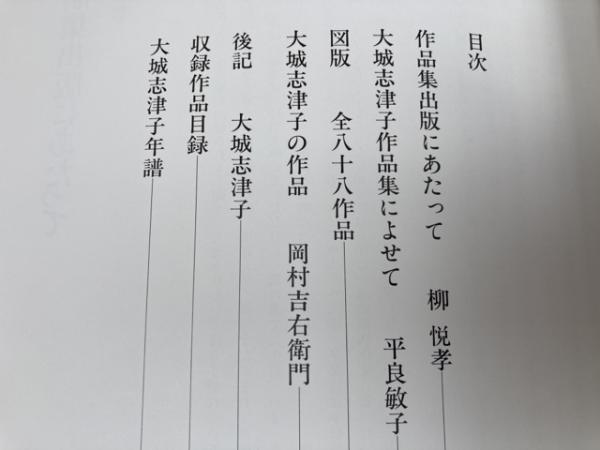 目次
作品集出版にあたって 柳 悦孝
大城志津子作品集によせて 平良敏子
図版 全八十八作品
大城志津子の作品 岡村吉右衛門
後記 大城志津子
収録作品目録
大城志津子年譜